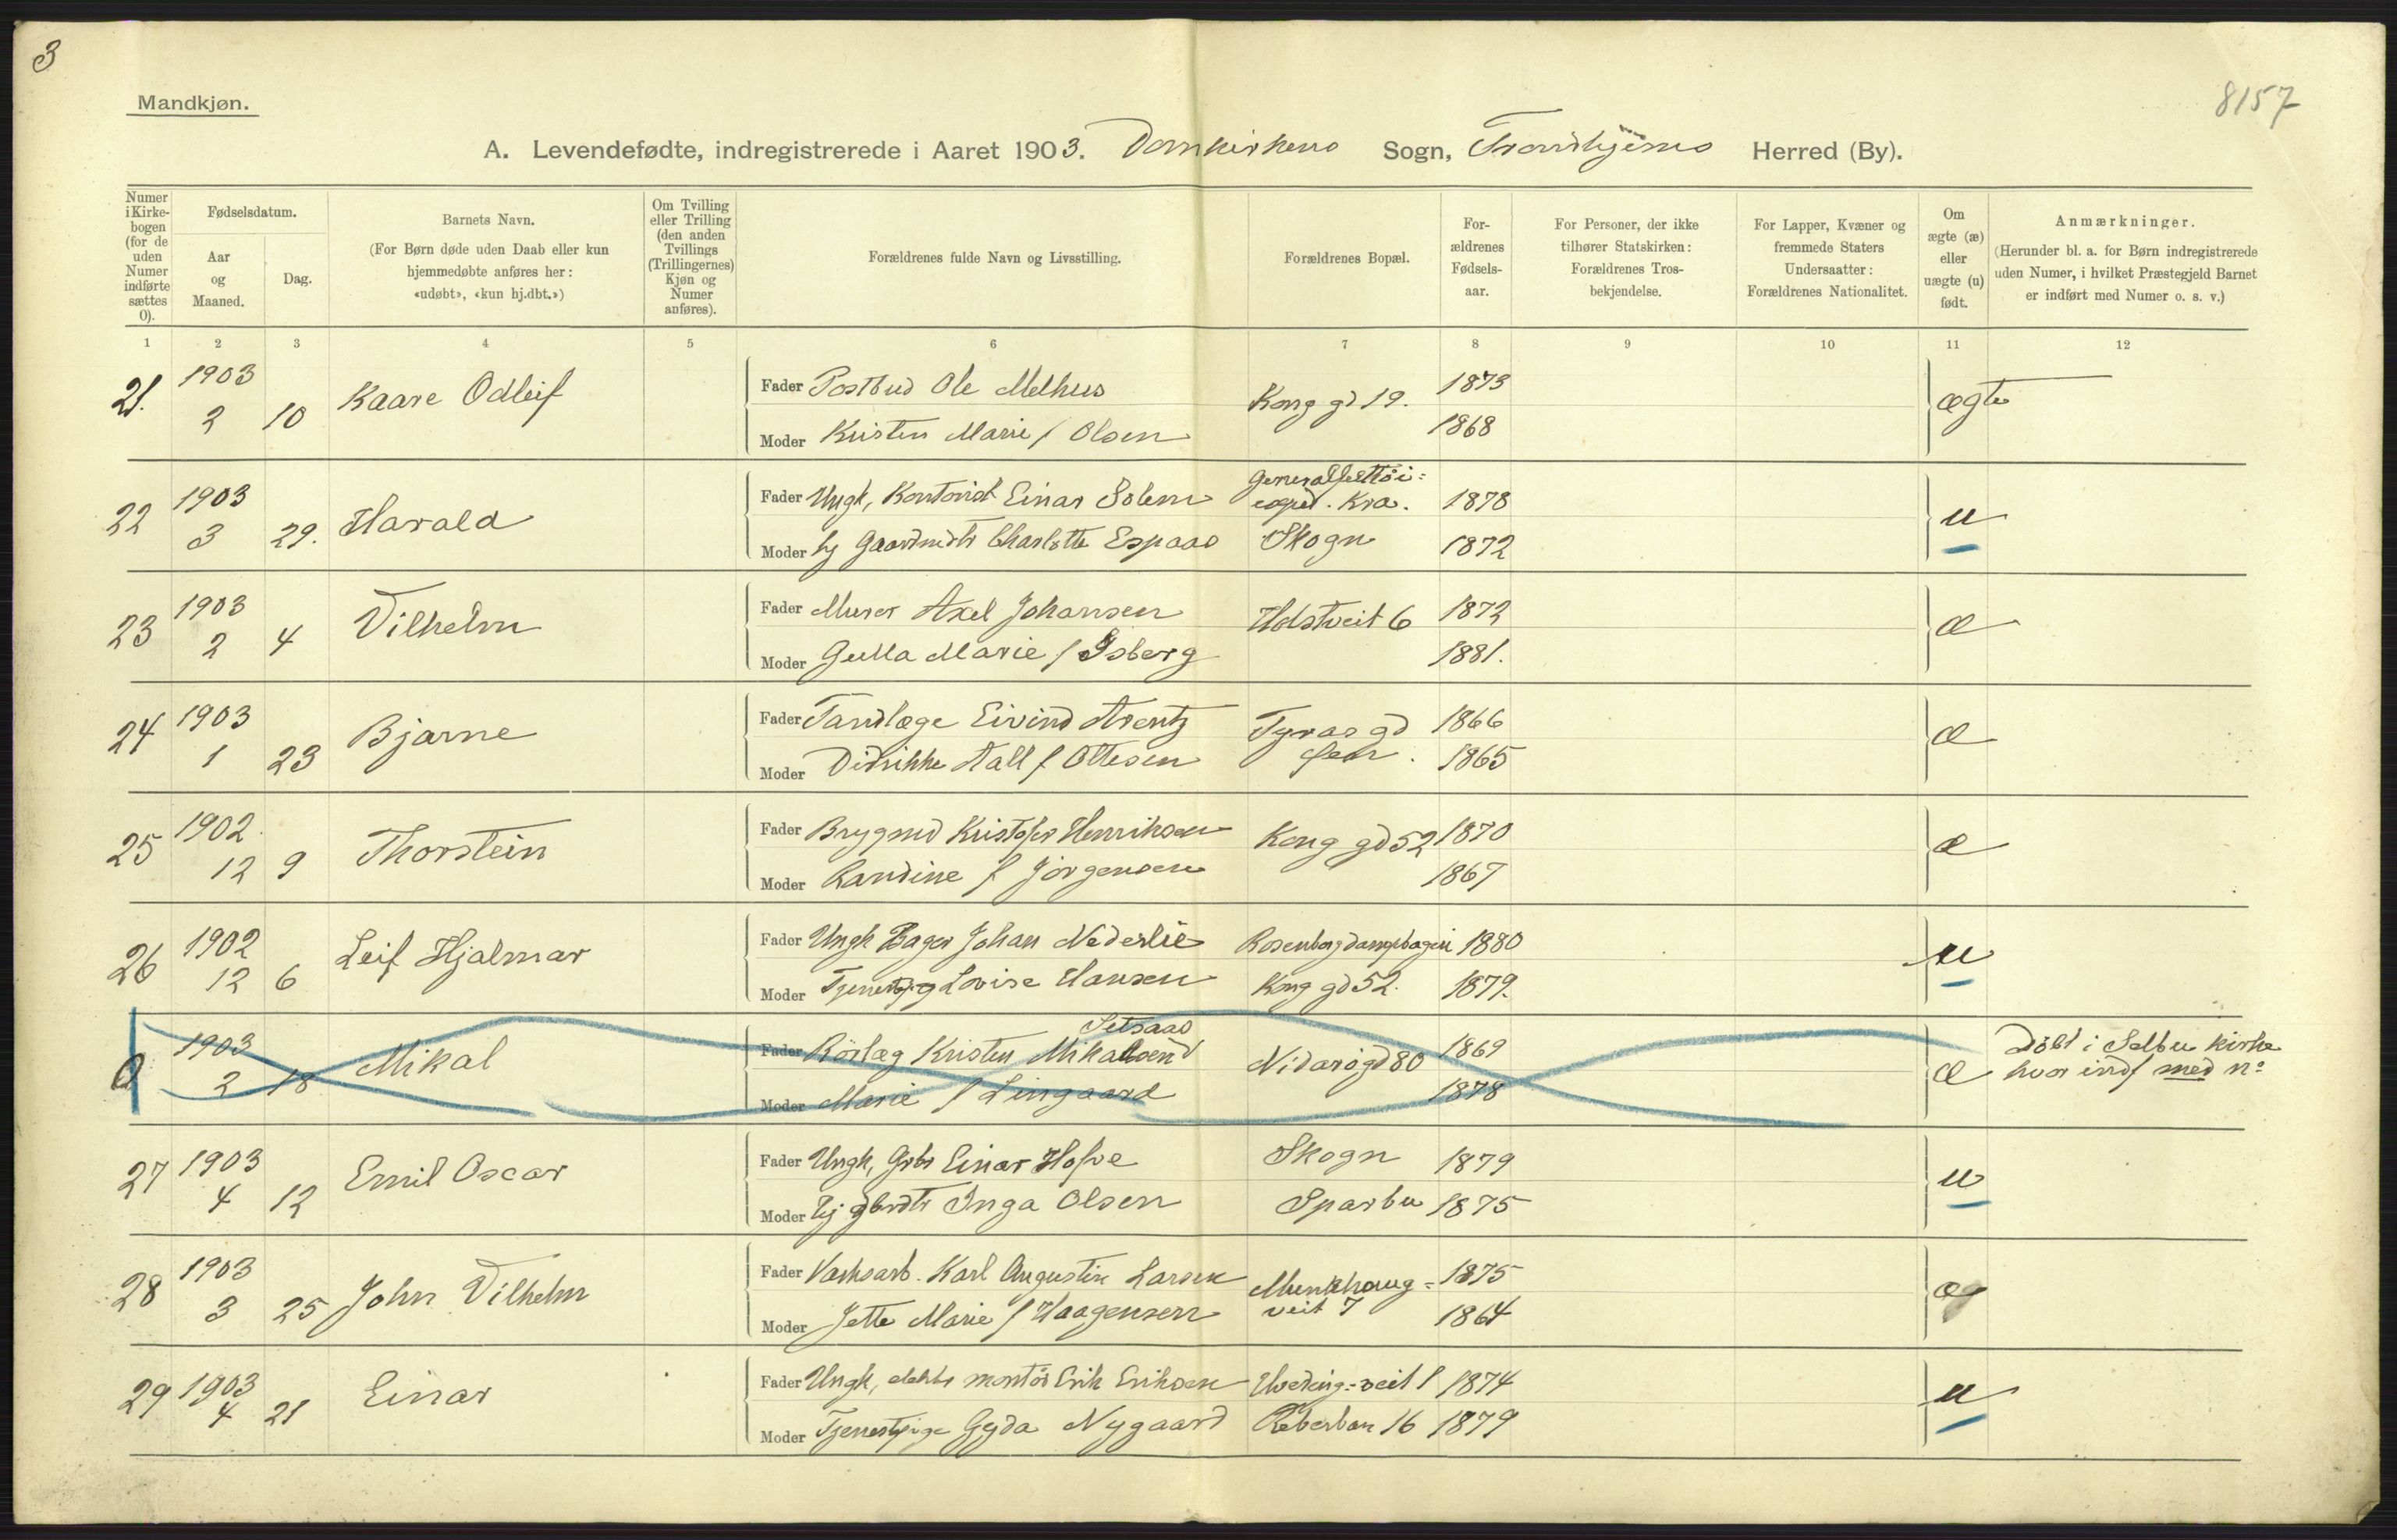 3
Mandkjøn.
8157
A. Levendefødte, indregistrerede i Aaret 1903. Domkirkens Sogn, Trondhjems Herred (By).
Numer i Kirke-bogen (for de uden Numer indførte sættes 0).
Fødselsdatum.
Aar og Maaned.
Dag.
Barnets Navn.
(For Børn døde uden Daab eller kun hjemmedøbte anføres her: «udøbt», «kun hj.dbt.»)
Om Tvilling eller Trilling (den anden Tvillings (Trillingernes) Kjøn og Numer anføres).
Forældrenes fulde Navn og Livsstilling.
Forældrenes Bopæl.
For-ældrenes Fødsels-aar.
For Personer, der ikke tilhører Statskirken: Forældrenes Tros-bekjendelse.
For Lapper, Kvæner og fremmede Staters Undersaatter: Forældrenes Nationalitet.
Om ægte (æ) eller uægte (u) født.
Anmærkninger.
(Herunder bl. a. for Børn indregistrerede uden Numer, i hvilket Præstegjeld Barnet er indført med Numer o. s. v.)
1 2 3 4 5 6 7 8 9 10 11 12
21. 1903 2 10 Kaare Odleif Fader Postbud Ole Melhus Kong gd 19. 1873 ægte
Moder Kristen Marie f Olsen 1868
22 1903 3 29. Harald Fader Ungk, Kontorist Einar Solem Generalfelttøi= exped. Kra. 1878 u
Moder Charlotte Espaas Skogn 1872
23 1903 2 4 Vilhelm Fader Murer Axel Johansen Holstveit 6 1872 æ
Moder Gulla Marie f Isberg 1881.
24 1903 1 23 Bjarne Fader Tandlæge Eivind Arentz 1866 æ
Moder Didrikke Aall f Ottesen 1865
25 1902 12 9 Thorstein Fader Brygmd Kristofer Henriksen Kong gd 52 1870 æ
Moder Randine f Jørgensen 1867
26 1902 12 6 Leif Hjalmar Fader Ungk Bager Johan Nederlie Rosenborg dampbageri 1880 u
Moder Lovise Hansen Kong gd 52. 1879.
0 1903 2 18 Mikal Fader Rørlæg Kristen Mikalsen Setsaas Nidarøgd 80 1869 æ Døbt i Selbu kirke hvor indf med no
Moder Marie f Lingaard 1878
27 1903 4 12 Emil Oscar Fader Ungk, Gbr Einar Hofve Skogn 1879 u
Moder Inga Olsen Sparbu 1875
28 1903 3 25 John Vilhelm Fader Karl Augustin Larsen Munkhaug= veit 7 1875 æ
Moder Jette Marie f Haagensen 1864
29 1903 4 21 Einar Fader Ungk, elektr montør Erik Eriksen Hveding=veit 1 1874 u
Moder Tjenestpige Gyda Nygaard Reberban 16 1879